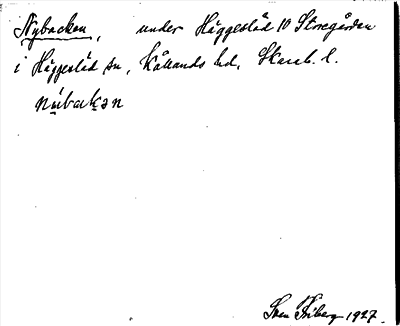 Nybacken, under Häggesled 10 Storegården
i Häggesled sn, Kållands hd, Skarab. l.
nẏbak̯ən
Sven Friberg 1927.